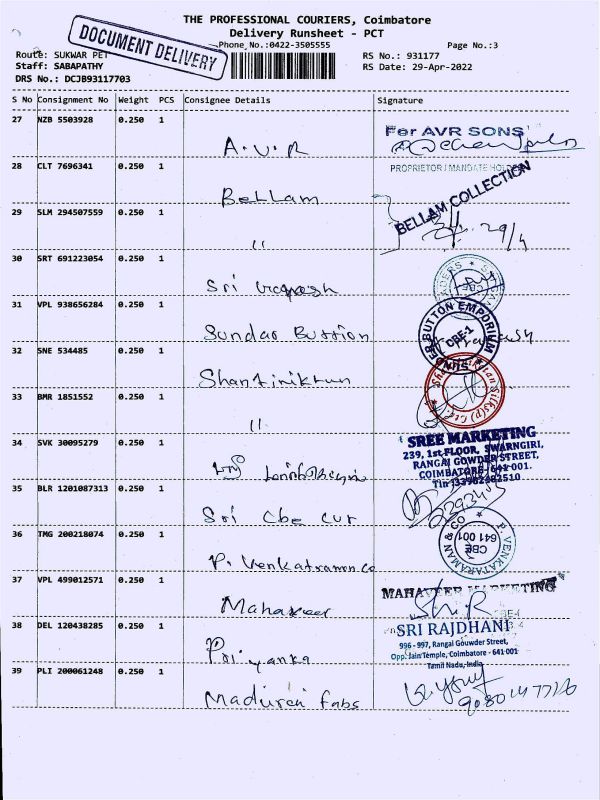 THE PROFESSIONAL COURIERS, Coimbatore
Delivery Runsheet - PCT
DOCUMENT DELIVERY
Phone No.:0422-3505555
Page No.:3
Route: SUKWAR PET
RS No.: 931177
Staff: SABAPATHY
RS Date: 29-Apr-2022
DRS No.: DCJB93117703
S No Consignment No Weight PCS Consignee Details Signature
27 NZB 5503928 0.250 1
A.V.R
For AVR SONS
PROPRIETOR / MANDATE HOLDER
28 CLT 7696341 0.250 1
Bellam
BELLAM COLLECTION
29 SLM 294507559 0.250 1
11
29/4
30 SRT 691223054 0.250 1
Sri
31 VPL 938656284 0.250 1
Sundar Buttion
BUTTON EMPORIUM
CBE-1
32 SNE 534485 0.250 1
Shantiniktun
33 BMR 1851552 0.250 1
11
34 SVK 30095279 0.250 1
SREE MARKETING
239, 1st FLOOR, SWARNGIRI,
RANGAI GOWDER STREET,
COIMBATORE-641 001.
35 BLR 1201087313 0.250 1
Sri Cbe Cut
36 TMG 200218074 0.250 1
P. Venkatramon co
P. VENKATARAMAN & CO
CBE
641 001
37 VPL 499012571 0.250 1
Mahaveer
MAHAVEER MARKETING
38 DEL 120438285 0.250 1
Priyanka
SRI RAJDHANI
996 - 997, Rangai Gouwder Street,
Opp. Jain Temple, Coimbatore - 641 001
Tamil Nadu, India
39 PLI 200061248 0.250 1
Madurai fabs